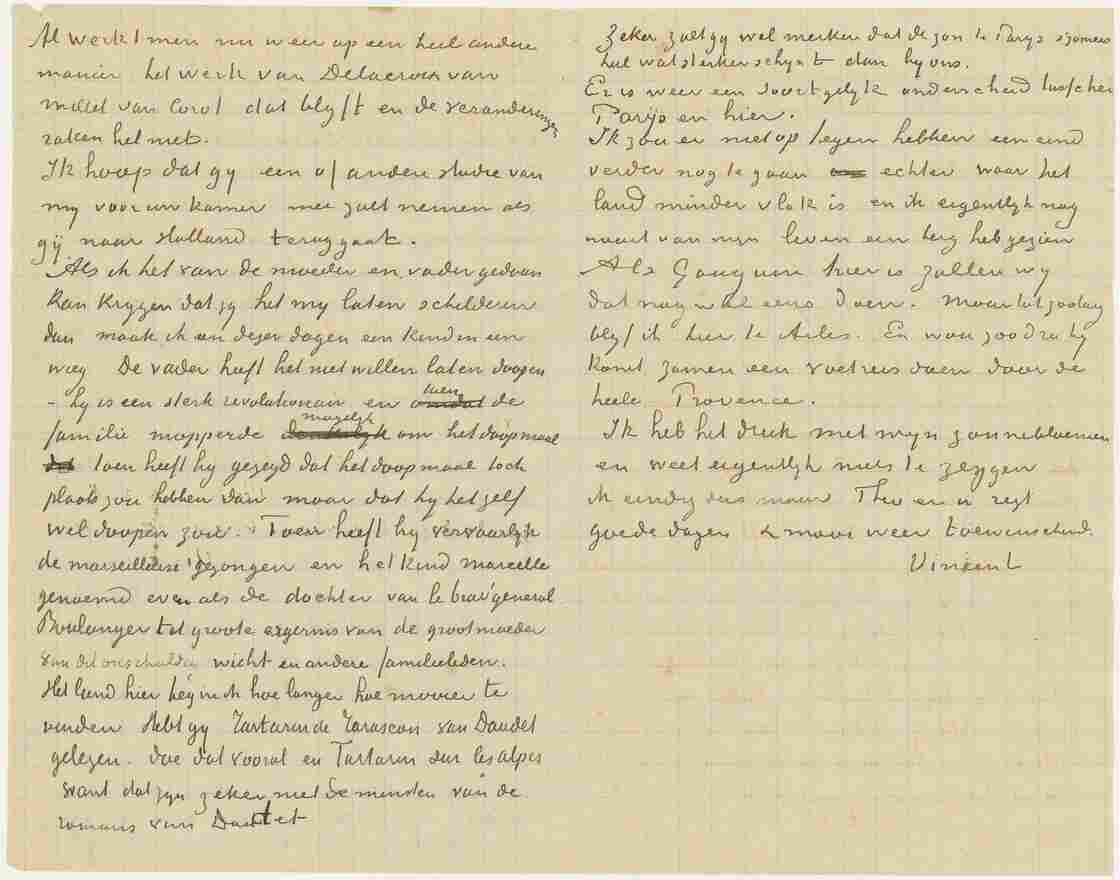 Al werkt men nu weer op een heel andere
manier het werk van Delacroix van
millet van Corot dat blyft en de veranderingen
raken het niet.
Ik hoop dat gy een of andere studie van
my voor uw kamer mee zult nemen als
gij naar Holland teruggaat.
Als ik het van de moeder en vader gedaan
kan krygen dat zy het my laten schilderen
dan maak ik een dezer dagen een kind in een
wieg De vader heeft het niet willen laten doopen
– hy is een sterk revolutionair en omdat toen de
familie mopperde mogelyk om het doopmaal
toen heeft hy gezegd dat het doopmaal toch
plaats zou hebben dan maar dat hy het zelf
wel doopen zou. Toen heeft hy vervaarlyk
de marseillaise gezongen en het kind marcelle
genoemd even als de dochter van le brav' general
Boulanger tot groote ergernis van de grootmoeder
van dit onschuldig wicht en andere familieleden.
Het land hier begin ik hoe langer hoe mooier te
vinden Hebt gy Tartarin de Tarascon van Daudet
gelezen. doe dat vooral en Tartarin sur les alpes
want dat zyn zeker niet de minsten van de
romans van Daudet
Zeker zult gy wel merken dat de zon te Parys szomers
heel wat sterker schynt dan by ons.
Er is weer een soortgelyk onderscheid tusschen
Parijs en hier.
Ik zou er niet op tegen hebben een eind
verder nog te gaan echter waar het
land minder vlak is en ik eigentlyk nog
nooit van myn leven een berg heb gezien
Als Gauguin hier is zullen wy
dat nog wel eens doen. Maar tot zoolang
blyf ik hier te Arles. En wou zoodra hy
komt zamen een voetreis doen door de
heele Provence.
Ik heb het druk met myn zonnebloemen
en weet eigentlyk niets te zeggen
ik eindig dus maar Theo en u regt
goede dagen & mooi weer toewenschend.
Vincent